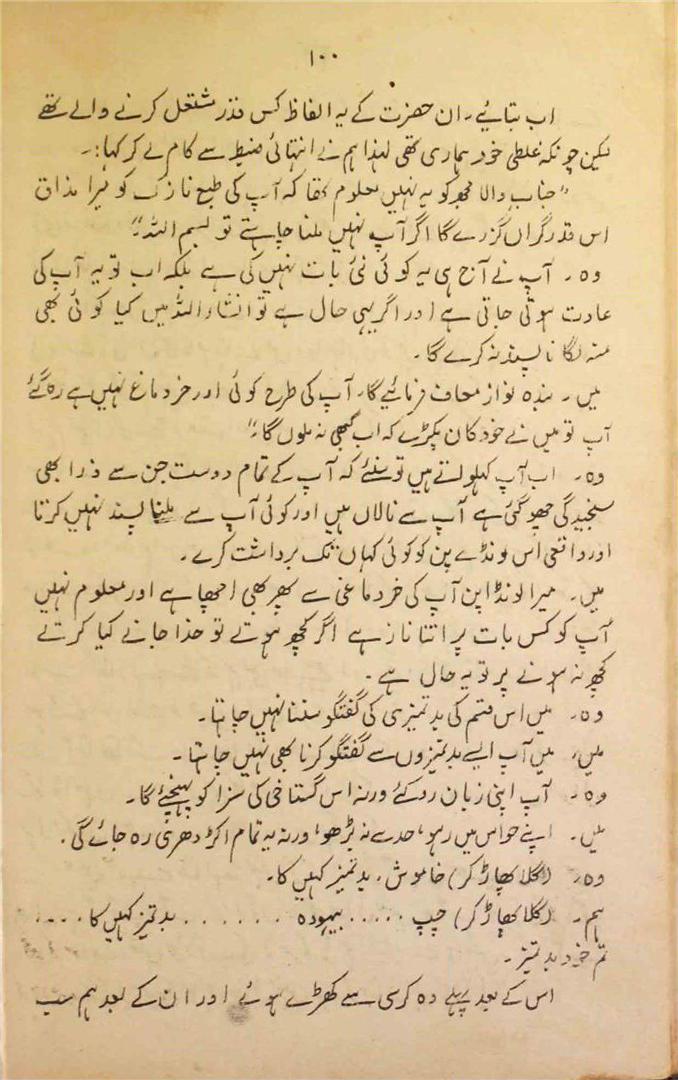 ۱۰۰
اب بتائیے۔ ان حضرت کے یہ الفاظ کس قدر مشتعل کرنے والے تھے
لیکن چونکہ غلطی خود ہماری تھی لہٰذا ہم نے انتہائی ضبط سے کام لے کر کہا:۔
"جناب والا مجھ کو یہ نہیں معلوم تھا کہ آپ کی طبع نازک کو میرا مذاق
اس قدر گراں گزرے گا اگر آپ نہیں ملنا چاہتے تو بسم اللہ"
وہ۔ آپ نے آج ہی یہ کوئی نئی بات نہیں کی ہے بلکہ اب تو یہ آپ کی
عادت ہوتی جاتی ہے اور اگر یہی حال ہے تو انشاء اللہ میں کیا کوئی بھی
منہ لگانا پسند نہ کرے گا۔
میں۔ بندہ نواز معاف فرمائیے گا۔ آپ کی طرح کوئی اور خر دماغ نہیں ہے رہ گئے
آپ تو میں نے خود کان پکڑے کہ اب کبھی نہ ملوں گا"
وہ۔ اب آپ کہلواتے ہیں تو سنئے کہ آپ کے تمام دوست جن سے ذرا بھی
سنجیدگی چھو گئی ہے آپ سے نالاں ہیں اور کوئی آپ سے ملنا پسند نہیں کرتا
اور واقعی اس لونڈے پن کو کوئی کہاں تک برداشت کرے۔
میں۔ میرا لونڈا پن آپ کی خر دماغی سے پھر بھی اچھا ہے اور معلوم نہیں
آپ کو کس بات پر اتنا ناز ہے اگر کچھ ہوتے تو خدا جانے کیا کرتے
کچھ نہ ہونے پر تو یہ حال ہے۔
وہ۔ میں اس قسم کی بدتمیزی کی گفتگو سننا نہیں چاہتا۔
میں۔ میں آپ ایسے بدتمیزوں سے گفتگو کرنا بھی نہیں چاہتا۔
وہ۔ آپ اپنی زبان روکئے ورنہ اس گستاخی کی سزا کو پہنچئے گا۔
میں۔ اپنے حواس میں رہو، حد سے نہ بڑھو، ورنہ یہ تمام اکڑ دھری رہ جائے گی۔
وہ۔ (گلا پھاڑ کر) خاموش، بدتمیز کہیں کا۔
ہم۔ (گلا پھاڑ کر) چپ ..... بیہودہ ....... بدتمیز کہیں کا ....
تم خود بدتمیز۔
اس کے بعد پہلے وہ کرسی سے کھڑے ہوئے اور ان کے بعد ہم سب